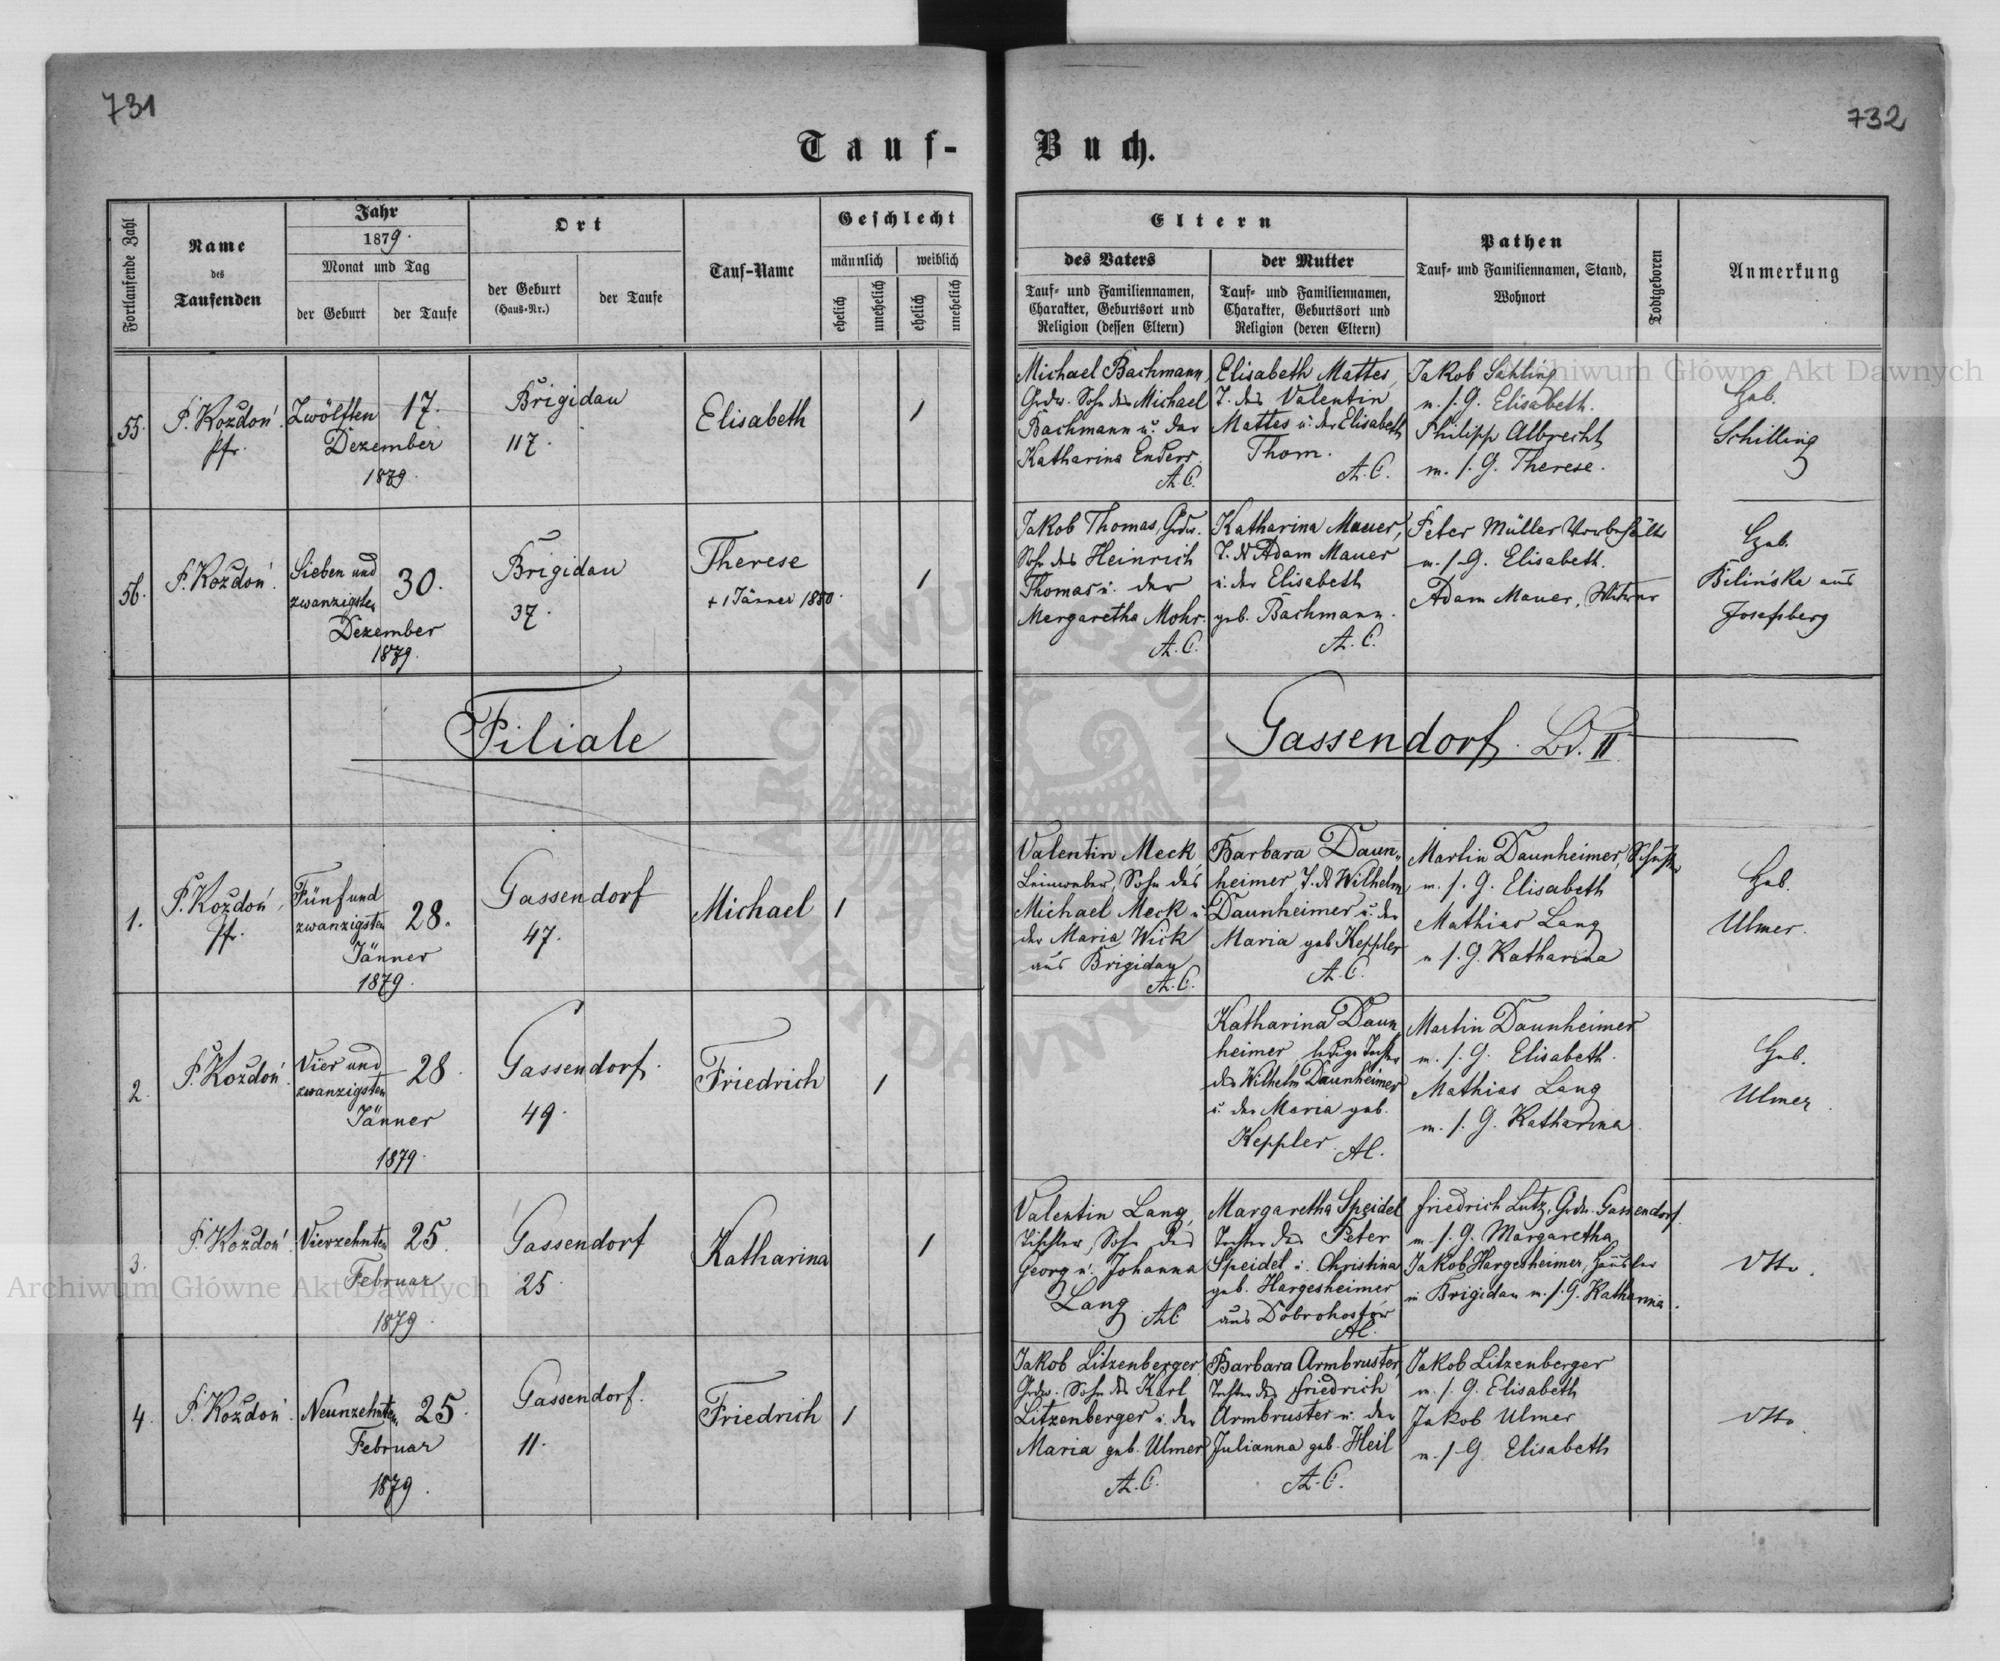 731
732
Tauf-
Buch.
Fortlaufende Zahl
Name
des
Taufenden
Jahr
1879.
Monat und Tag
der Geburt
der Taufe
Ort
der Geburt
(Haus-Nr.)
der Taufe
Tauf-Name
Geschlecht
männlich
weiblich
ehelich
unehelich
ehelich
unehelich
Eltern
des Vaters
Tauf- und Familiennamen,
Charakter, Geburtsort und
Religion (dessen Eltern)
der Mutter
Tauf- und Familiennamen,
Charakter, Geburtsort und
Religion (deren Eltern)
Pathen
Tauf- und Familiennamen, Stand,
Wohnort
Todtgeboren
Anmerkung
55.
P. Kozdoń
Pfr.
Zwölften
Dezember
1879.
17.
Brigidau
117.
Elisabeth
1
Michael Bachmann,
Grdw. Sohn des Michael
Bachmann u. der
Katharina Enders
A.C.
Elisabeth Mattes,
T. des Valentin
Mattes u. der Elisabeth
Thom.
A.C.
Jakob
m. s. G. Elisabeth.
Philipp Albrecht
m. s. G. Therese.
Heb.
Schilling
56.
P. Kozdoń.
Sieben und
zwanzigsten
Dezember
1879.
30.
Brigidau
37.
Therese
+ 1 Jänner 1880.
1
Jakob Thomas, Grdw.
Sohn des Heinrich
Thomas u. der
Margaretha Mohr.
A.C.
Katharina Mauer,
T. d. Adam Mauer
u. der Elisabeth
geb. Bachmann.
A.C.
Peter Müller
m. s. G. Elisabeth.
Adam Mauer, Witwer
Heb.
Bilińska aus
Josefsberg
Filiale
Gassendorf. Bd. II
1.
P. Kozdoń,
Pfr.
Fünf und
zwanzigsten
Jänner
1879.
28.
Gassendorf
47.
Michael
1
Valentin Meck
Leinweber, Sohn des
Michael Meck u.
der Maria Wick
aus Brigidau
A.C.
Barbara Daun-
heimer, T. d. Wilhelm
Daunheimer u. der
Maria geb Keppler
A.C.
Martin Daunheimer,
m. s. G. Elisabeth
Mathias Lang
m s. G. Katharina
Heb.
Ulmer.
2.
P. Kozdoń.
Vier und
zwanzigsten
Jänner
1879.
28.
Gassendorf.
49.
Friedrich
1
Katharina Daun
heimer, ledige Tochter
des Wilhelm Daunheimer
u. der Maria geb.
Keppler. AC.
Martin Daunheimer
m. s. G. Elisabeth.
Mathias Lang
m. s. G. Katharina.
Heb.
Ulmer.
3.
P. Kozdoń.
Vierzehnten
Februar
1879.
25.
Gassendorf
25.
Katharina
1
Valentin Lang,
Tischler, Sohn des
Georg u. Johanna
Lang. AC
Margaretha Speidel
Tochter des Peter
Speidel u. Christina
geb. Hargesheimer
aus Dobrohostów
AC.
Friedrich Lutz, Grdw. Gassendorf.
m. s. G. Margaretha
Jakob Hargesheimer, Häusler
in Brigidau m. s. G. Katharina.
dtto.
4.
P. Kozdoń.
Neunzehnten
Februar
1879.
25.
Gassendorf.
11.
Friedrich
1
Jakob Litzenberger
Grdw. Sohn des Karl
Litzenberger u. der
Maria geb. Ulmer
A.C.
Barbara Armbruster,
Tochter des Friedrich
Armbruster u. der
Julianna geb. Heil
A.C.
Jakob Litzenberger
m. s. G. Elisabeth
Jakob Ulmer
m. s. G. Elisabeth
dtto
Archiwum Główne Akt Dawnych
Archiwum Główne Akt Dawnych